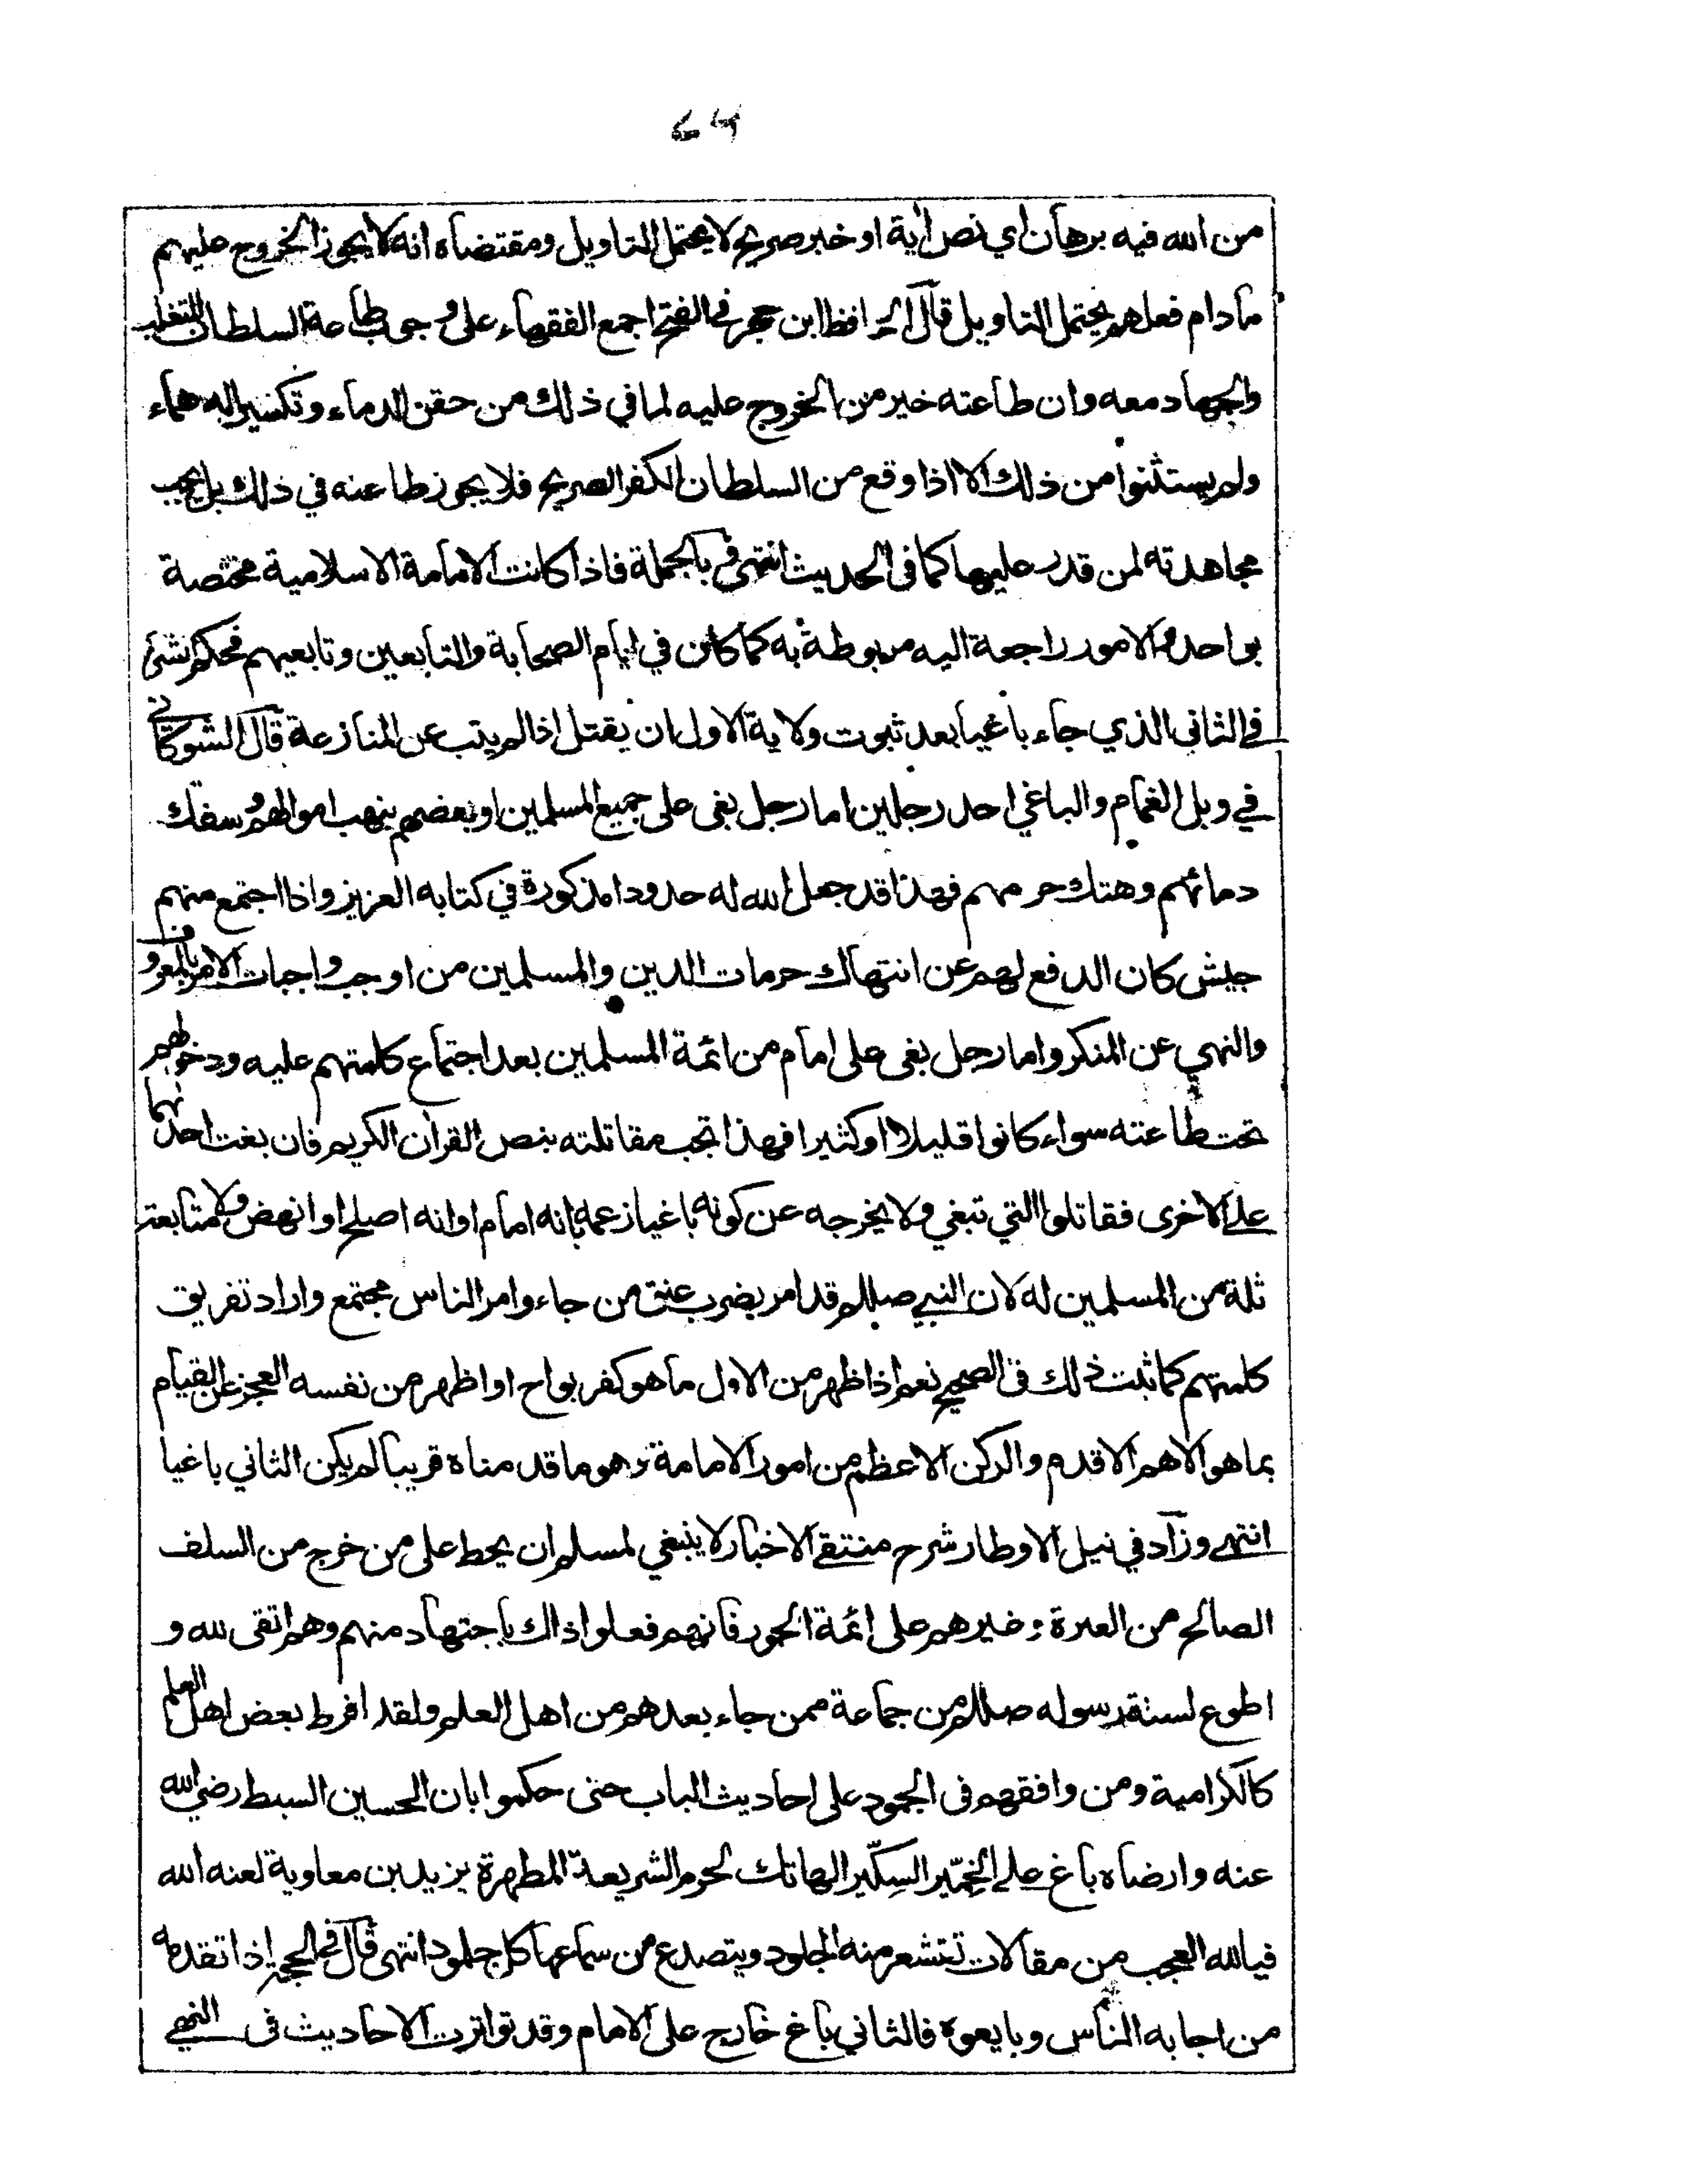 ٦٩
من الله فيه برهان اي نص اية او خبر صريح لا يحتمل التاويل ومقتضاه انه لا يجوز الخروج عليهم
ما دام فعلهم يحتمل التاويل قال الحافظ ابن حجر في الفتح اجمع الفقهاء على وجوب طاعة السلطان المتغلب
والجهاد معه وان طاعته خير من الخروج عليه لما في ذلك من حقن الدماء وتكسير الدهماء
ولم يستثنوا من ذلك الا اذا وقع من السلطان الكفر الصريح فلا يجوز طاعته في ذلك بل يجب
مجاهدته لمن قدر عليها كما في الحديث انتهى و بالجملة فاذا كانت الامامة الاسلامية مختصة
بواحد والامور راجعة اليه مربوطة به كما كان في ايام الصحابة والتابعين وتابعيهم فحكم الشرع
في الثاني الذي جاء باغيا بعد ثبوت ولاية الاول ان يقتل اذا لم يتب عن المنازعة قال الشوكاني
في وبل الغمام والباغي احد رجلين اما رجل بغى على جميع المسلمين او بعضهم ينهب اموالهم وسفك
دمائهم وهتك حرمهم فهذا قد جعل الله له حدودا مذكورة في كتابه العزيز واذا اجتمع منهم
جيش كان الدفع لهم عن انتهاك حرمات الدين والمسلمين من اوجب واجبات الامر بالمعروف
والنهي عن المنكر واما رجل بغى على امام من ائمة المسلمين بعد اجتماع كلمتهم عليه ودخولهم
تحت طاعته سواء كانوا قليلا او كثيرا فهذا تجب مقاتلته بنص القران الكريم فان بغت احداهما
على الاخرى فقاتلوا التي تبغي ولا يخرجه عن كونه باغيا زعمه بانه امام او انه اصلح او انهض ولا متابعة
ثلة من المسلمين له لان النبي صللم قد امر بضرب عنق من جاء وامر الناس مجتمع واراد تفريق
كلمتهم كما ثبت ذلك في الصحيح نعم اذا ظهر من الاول ما هو كفر بواح او اظهر من نفسه العجز عن القيام
بما هو الاهم الاقدم والركن الاعظم من امور الامامة وهو ما قدمناه قريبا لم يكن الثاني باغيا
انتهى وزاد في نيل الاوطار شرح منتقى الاخبار لا ينبغي لمسلم ان يحط على من خرج من السلف
الصالح من العترة وغيرهم على ائمة الجور فانهم فعلوا ذالك باجتهاد منهم وهم اتقى لله و
اطوع لسنة رسوله صللم من جماعة ممن جاء بعدهم من اهل العلم ولقد افرط بعض اهل العلم
كالكرامية ومن وافقهم في الجمود على احاديث الباب حتى حكموا بان الحسين السبط رضي الله
عنه وارضاه باغ على الخمّير السِكّير الهاتك لحرم الشريعة المطهرة يزيد بن معاوية لعنه الله
فيالله العجب من مقالات تقشعر منه الجلود ويتصدع من سماعها كل جلمود انتهى قال في الحجة اذا تقدمه
من اجابه الناس وبايعوه فالثاني باغ خارج على الامام وقد تواترت الاحاديث في النهي